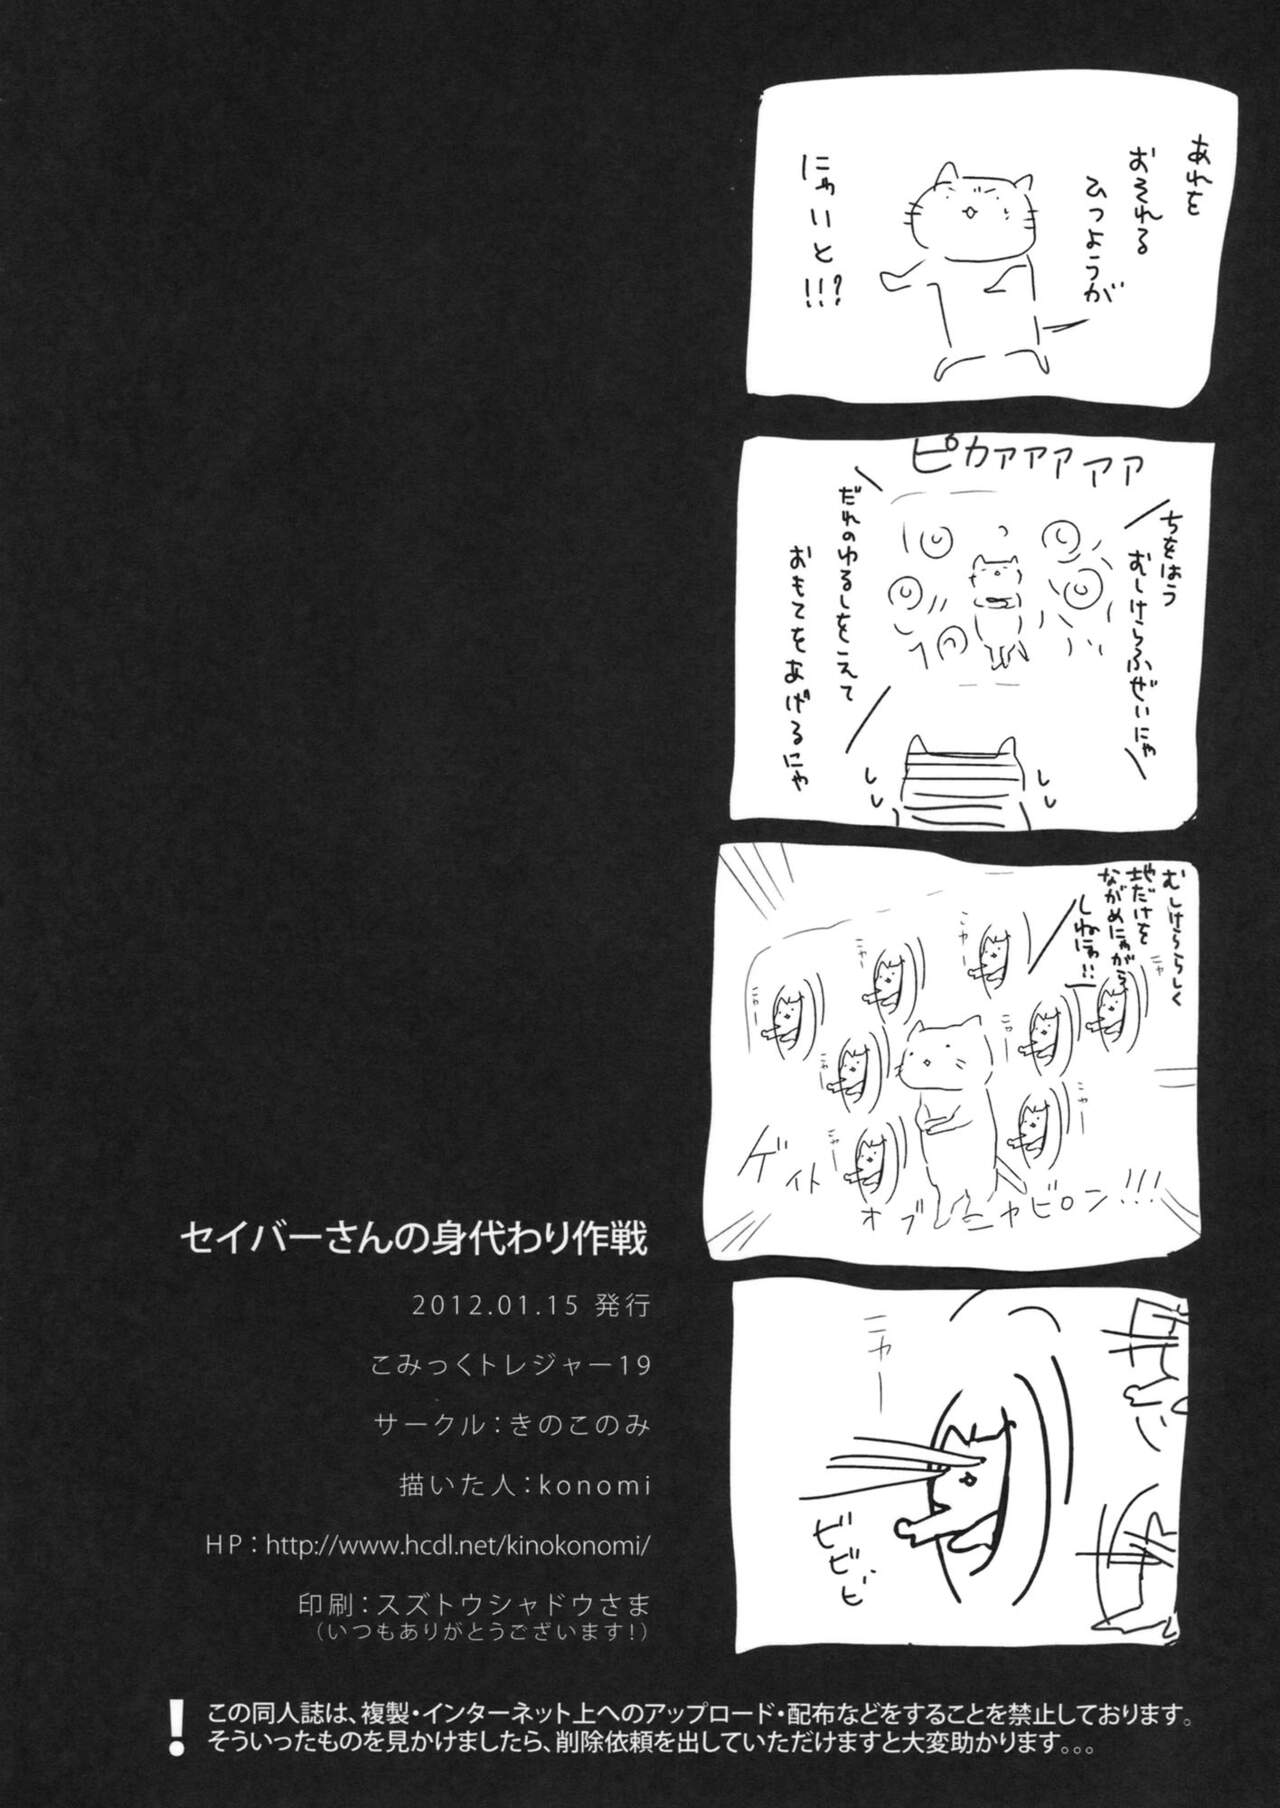 あれを
おそれる
ひつようが
にゃいと!!?
ピカァァァァァ
ちをはう
むしけらふぜいにゃ
だれのゆるしをこえて
おもてをあげるにゃ
むしけららしく
地だけを
ながめにゃがら
しねにゃ!!
ニャー
ニャー
ニャー
ニャー
ニャー
ニャー
ニャー
ニャー
ゲイト
オブニャビロン!!!
ニャー
ビビビ
セイバーさんの身代わり作戦
2012.01.15 発行
こみっくトレジャー19
サークル：きのこのみ
描いた人：konomi
HP：http://www.hcdl.net/kinokonomi/
印刷：スズトウシャドウさま
（いつもありがとうございます！）
!
この同人誌は、複製・インターネット上へのアップロード・配布などをすることを禁止しております。
そういったものを見かけましたら、削除依頼を出していただけますと大変助かります。。。